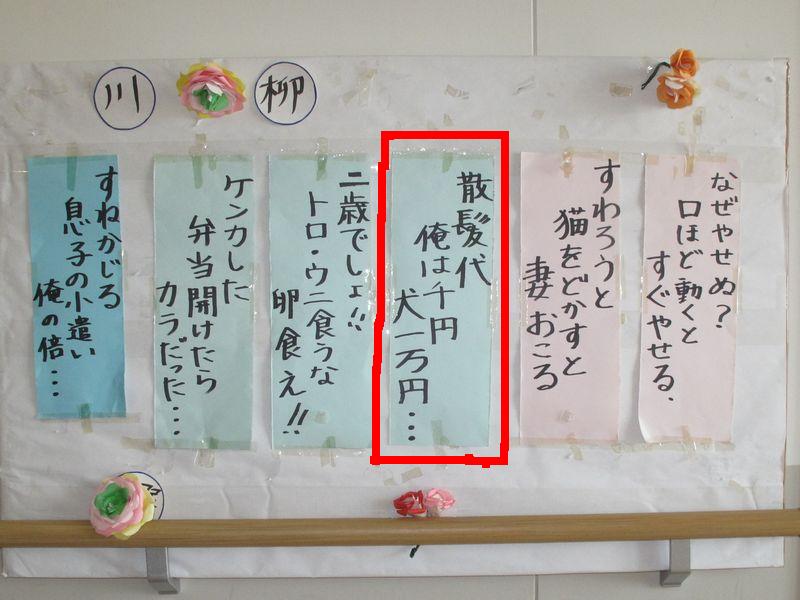 川柳
なぜやせぬ?
口ほど動くと
すぐやせる、
すわろうと
猫をどかすと
妻おこる
散髪代
俺は千円
犬一万円…
二歳でしょ!!
トロ・ウニ食うな
卵食え!!
ケンカした
弁当開けたら
カラだった…
すねかじる
息子の小遣い
俺の倍…